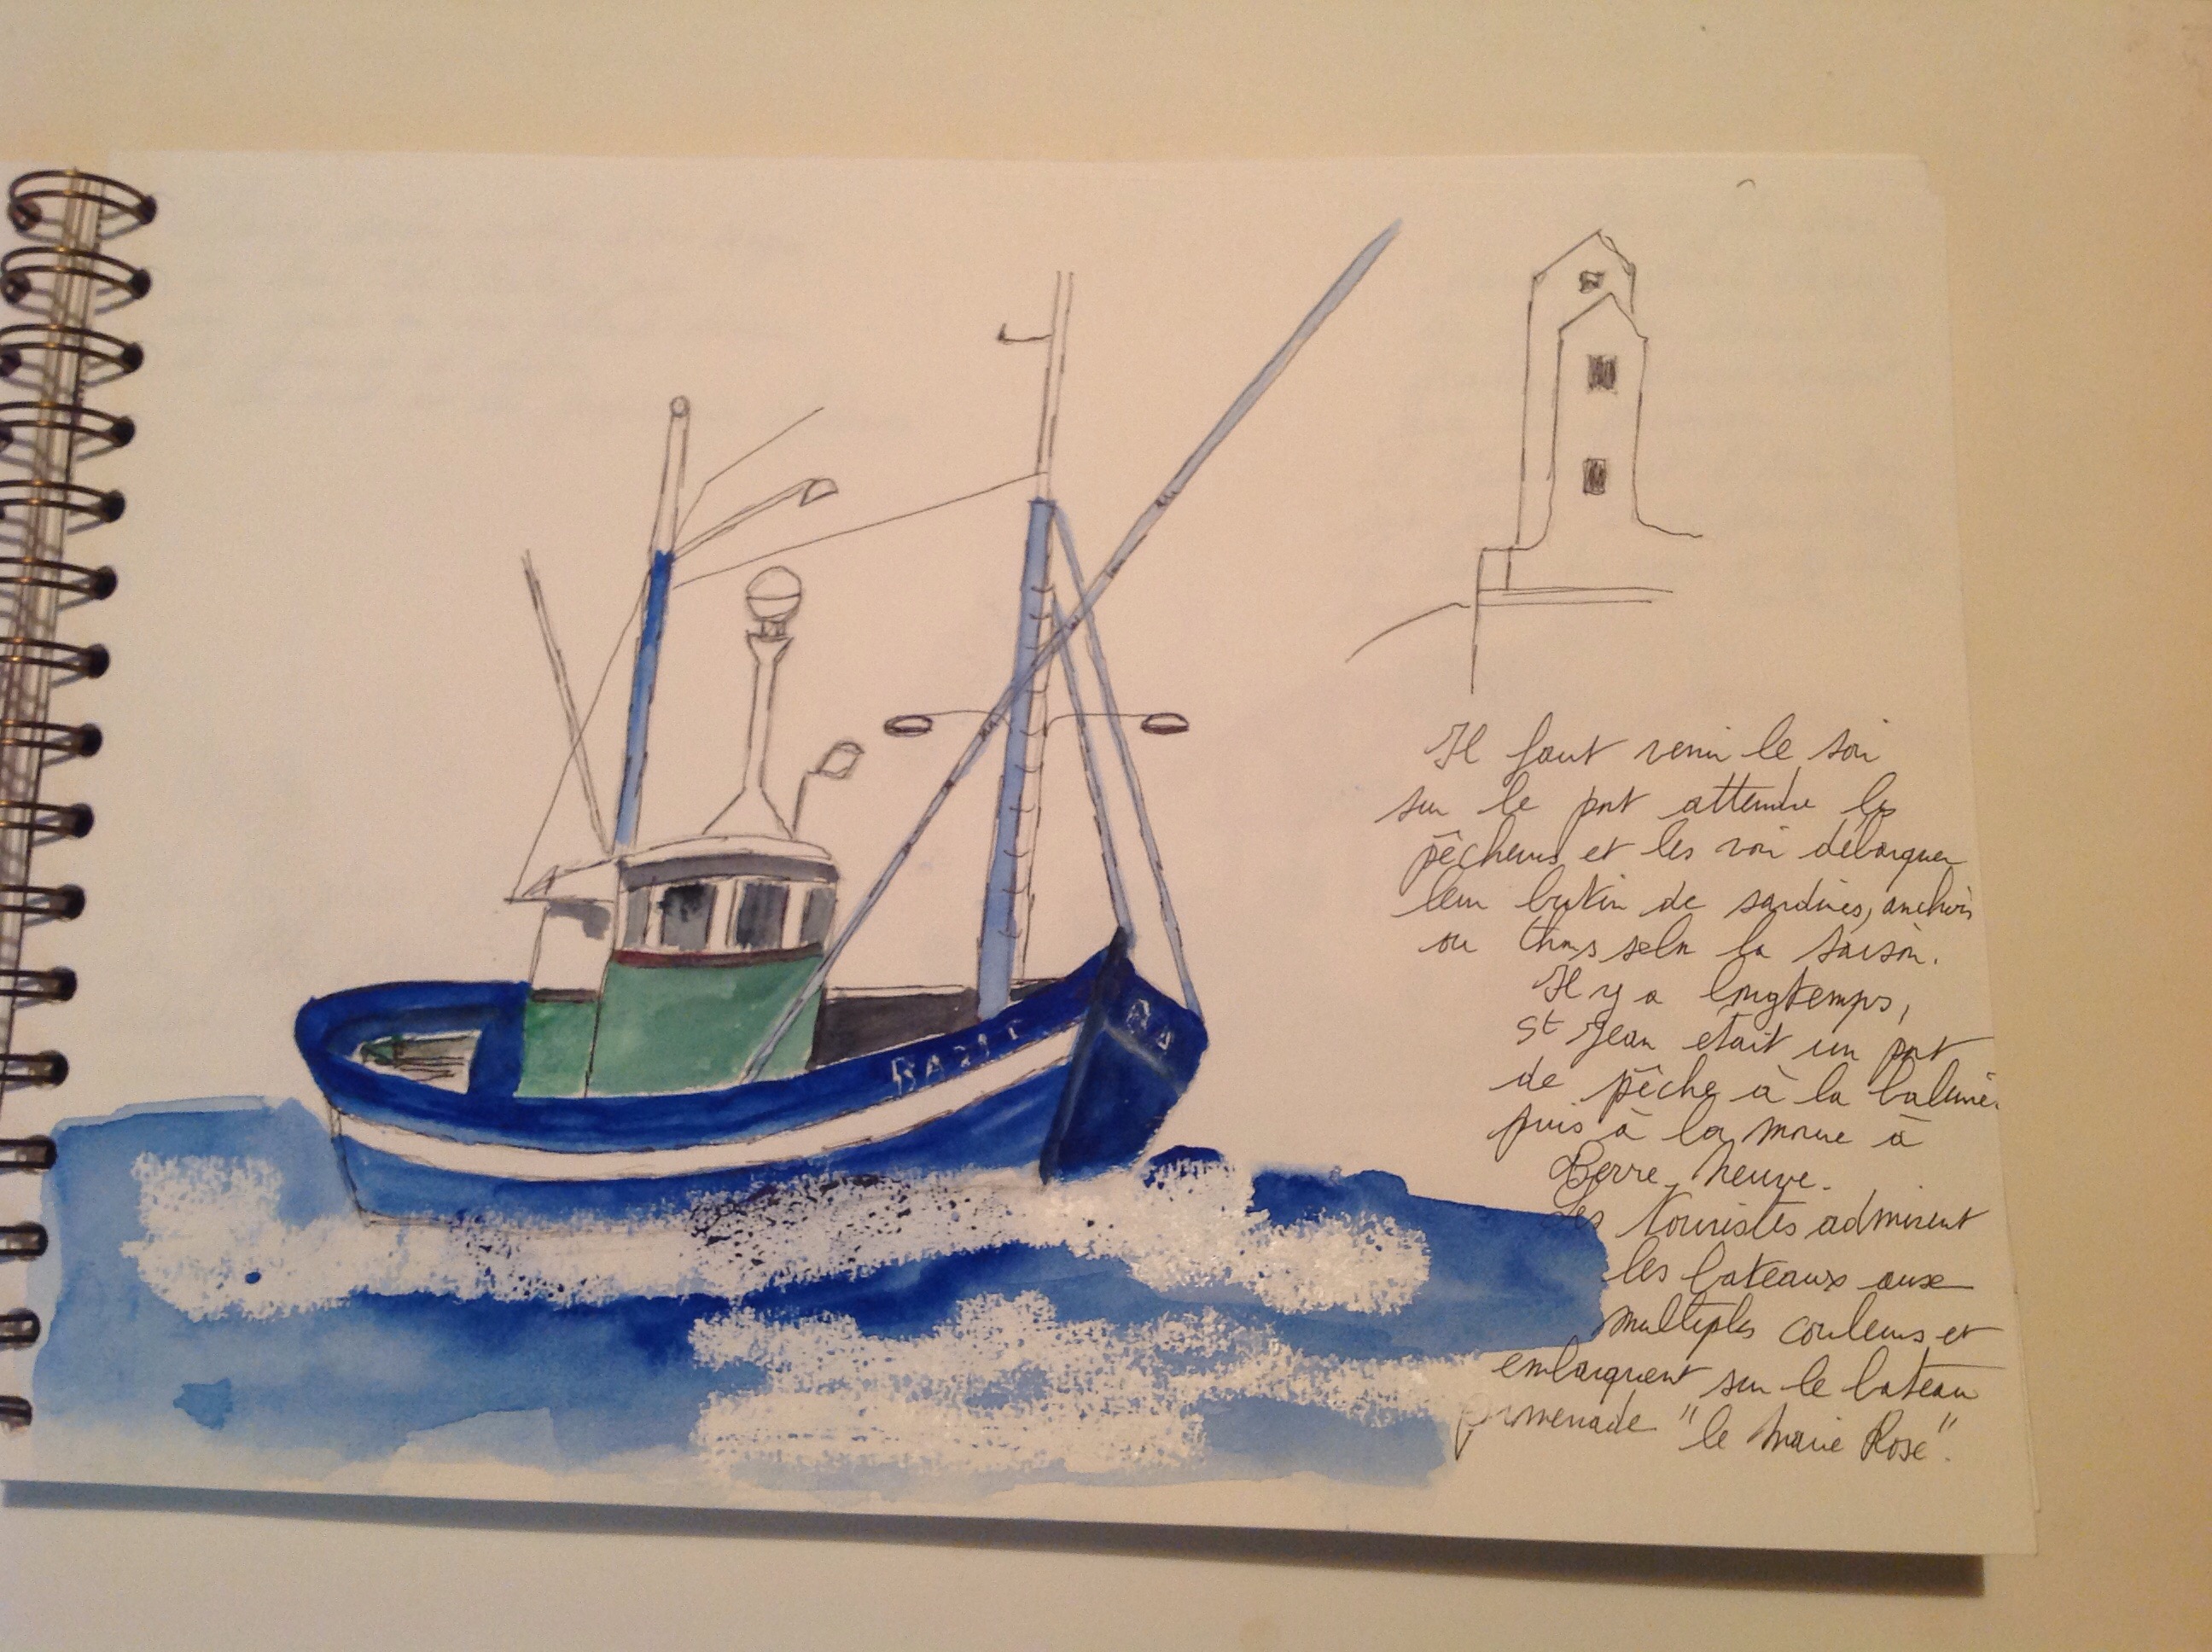 Il faut venir le soir
sur le port attendre les
pêcheurs et les voir débarquer
leur butin de sardines, anchois
ou thons selon la saison.
Il y a longtemps,
St Jean était un port
de pêche à la baleine.
puis à la morue à
Terre-Neuve.
Les touristes admirent
les bateaux aux
multiples couleurs et
embarquent sur le bateau
promenade "le Marie Rose".